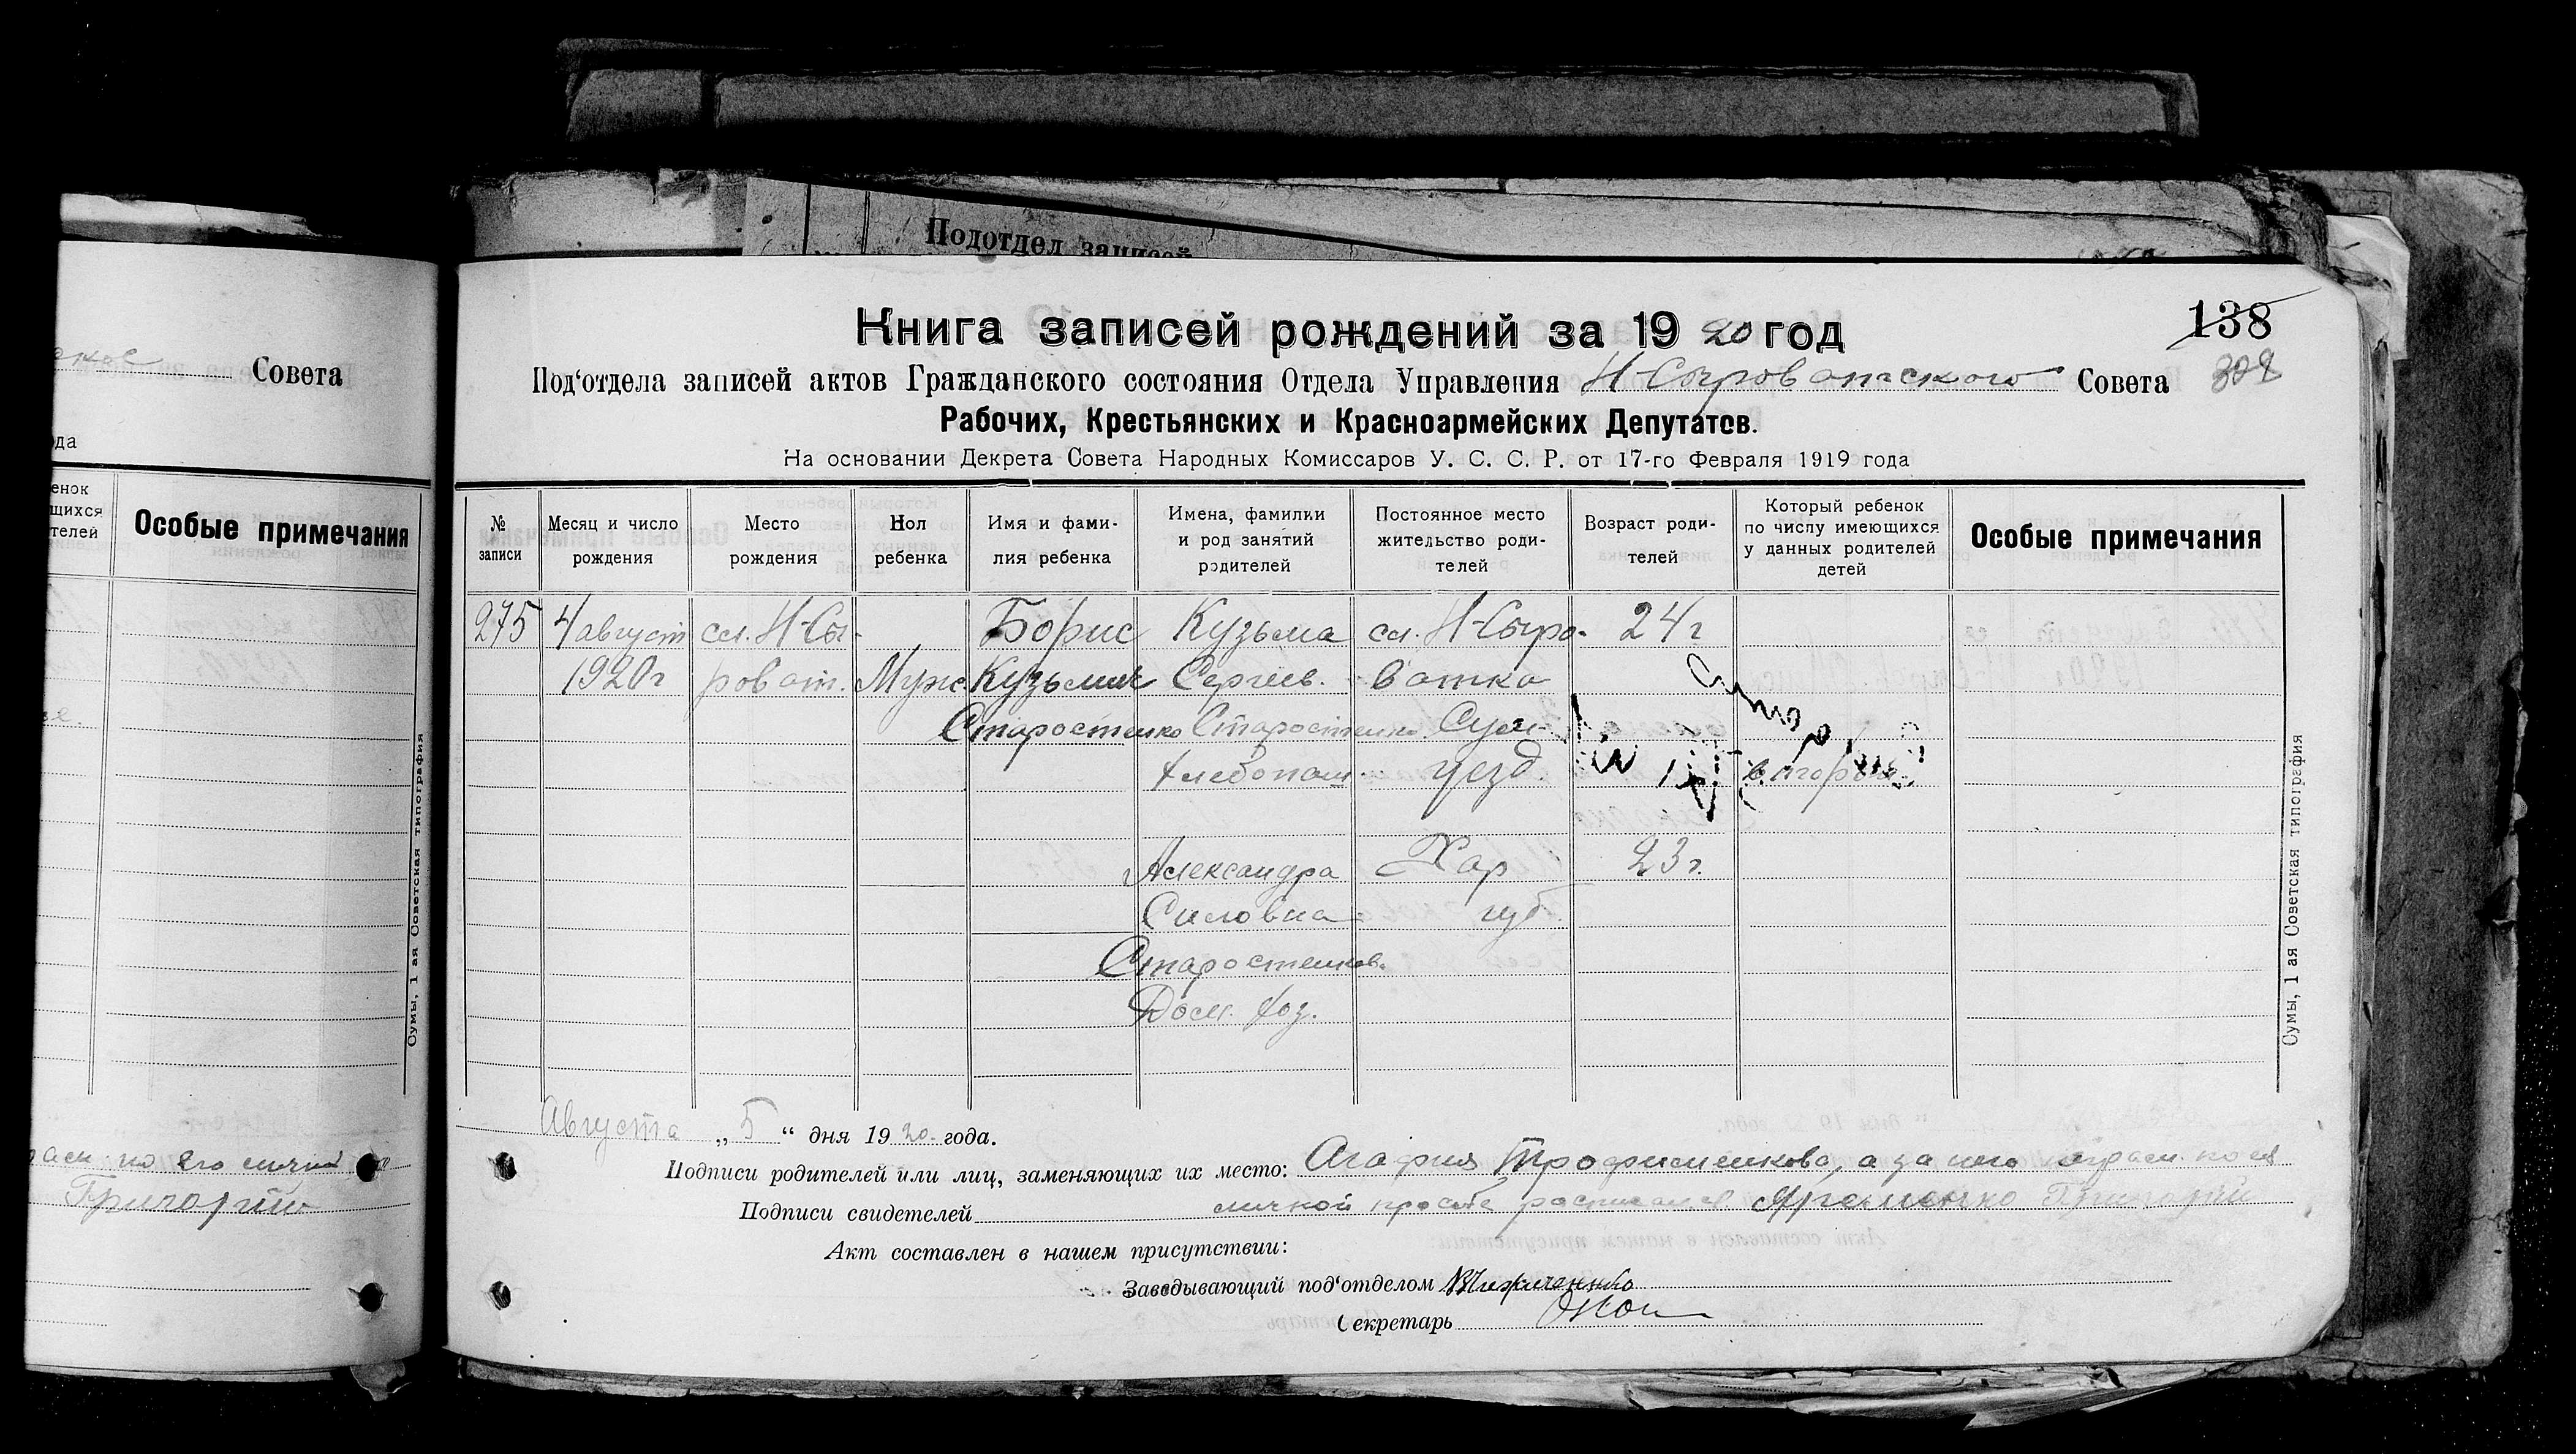 Подотдел записей
ское Совета
ода
енок
щихся
телей
Особые примечания
аем по его личной
Григорий
Сумы, 1 ая Советская типография
138
Книга записей рождений за 19 20 год
Под‘отдела записей актов Гражданского состояния Отдела Управления Н-Сыроватского Совета
Рабочих, Крестьянских и Красноармейских Депутатов.
На основании Декрета Совета Народных Комиссаров У. С. С. Р. от 17-го Февраля 1919 года
№ записи
Месяц и число рождения
Место рождения
Пол ребенка
Имя и фами-лия ребенка
Имена, фамилии и род занятий родителей
Постоянное место жительство роди-телей
Возраст роди-телей
Который ребенок по числу имеющихся у данных родителей детей
Особые примечания
275 4 август сл. Н-Сы- Борис Кузьма сл. Н-Сыро- 24 г
1920 г роват. Муж. Кузьмич Сергеев. ватка
Старостенко Старостенко Сум.
Хлебопаш. уезд. второй
Александра Хар 23 г.
Силовна губ.
Старостенков.
Дом. хоз.
Сумы, 1 ая Советская типография
Августа „ 5 “ дня 19 20 года.
Подписи родителей или лиц, заменяющих их место: Агафия Трофименкова, а за него неграм. по ея
Подписи свидетелей личной просьбе расписался Яременко Григорий
Акт составлен в нашем присутствии:
Заведывающий под‘отделом
Секретарь